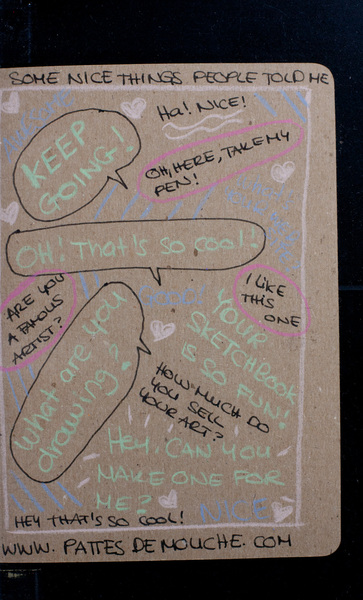 SOME NICE THINGS PEOPLE TOLD ME
Ha! NICE!
KEEP
GOING!
OH, HERE, TAKE MY
PEN!
OH! That's so cool!
ARE YOU
A FAMOUS
ARTIST?
Sooo!
I LIKE
THIS
ONE
YOUR
SKETCHBOOK
IS SO FUN!
What are you
drawing?
HOW MUCH DO
YOU SELL
YOUR ART?
HEY, CAN YOU
MAKE ONE FOR
ME?
NICE
HEY THAT'S SO COOL!
WWW. PATTES DE MOUCHE. COM